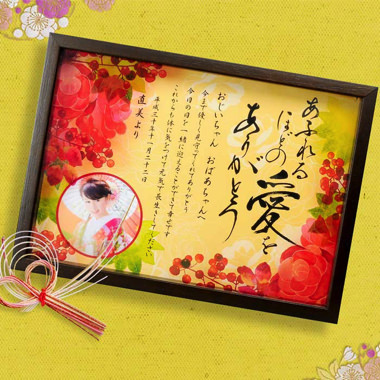 あふれる
ほどの
愛を
ありがとう
おじいちゃん おばあちゃんへ
今まで優しく見守ってくれてありがとう
今日の日を一緒に迎えることができて幸せです
これからも体に気をつけて元気で長生きしてください
平成三十年十一月二十二日
直美より